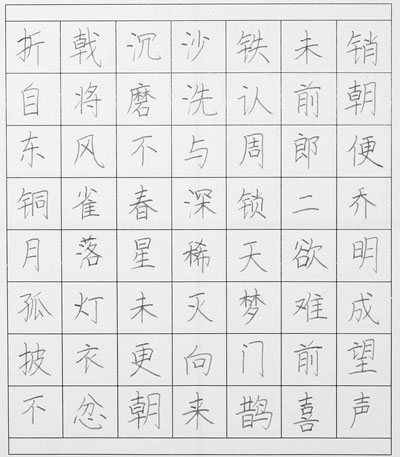 折戟沉沙铁未销
自将磨洗认前朝
东风不与周郎便
铜雀春深锁二乔
月落星稀天欲明
孤灯未灭梦难成
披衣更向门前望
不忿朝来鹊喜声